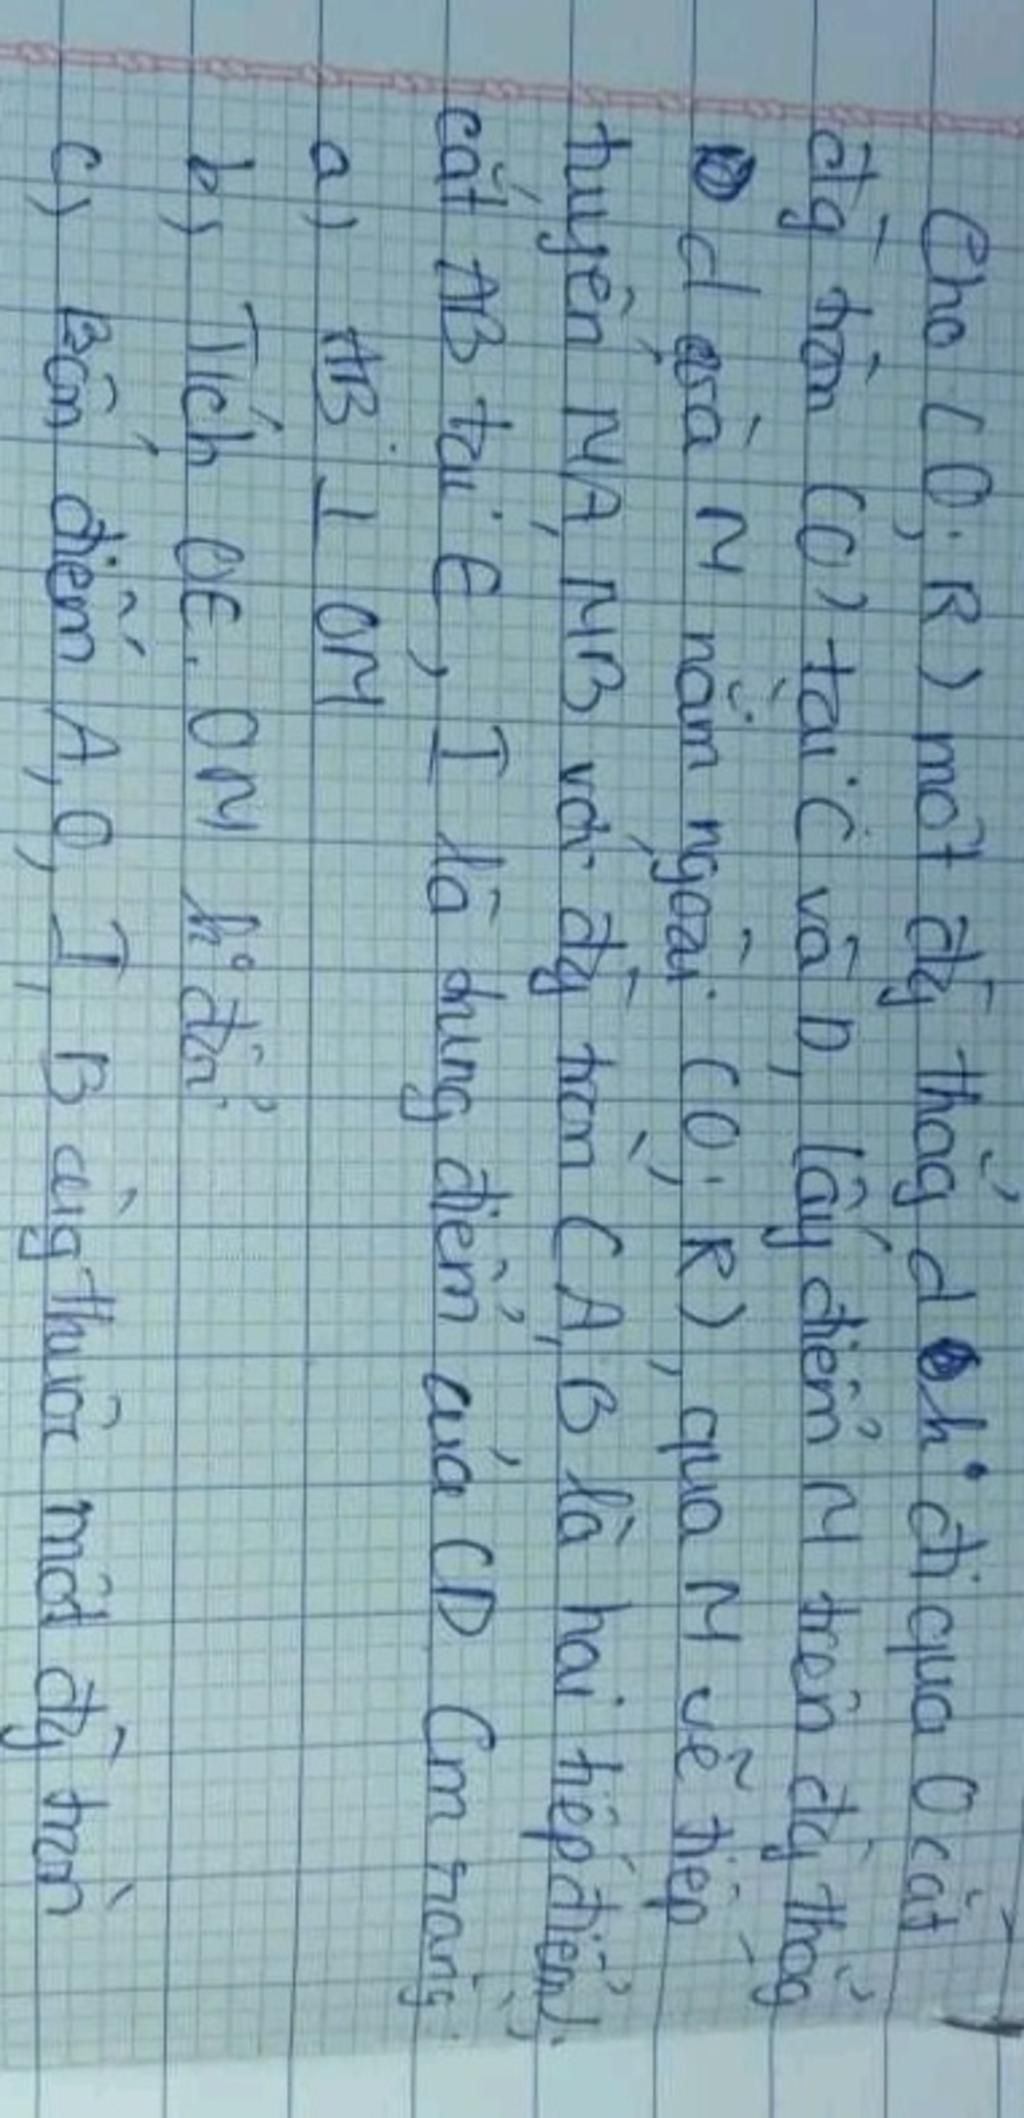 Cho (O; R) một đg thẳg d k° đi qua O cắt
đg tròn (O) tại C và D, lấy điểm M trên đg thẳg
d và M nằm ngoài (O; R), qua M vẽ tiếp
tuyến MA, MB với đg tròn (A, B là hai tiếp điểm).
cắt AB tại E, I là trung điểm của CD Cm rằng:
a) AB ⊥ OM
b) Tích OE. OM k° đổi
c) Bốn điểm A, O, I, B cùg thuộc một đg tròn